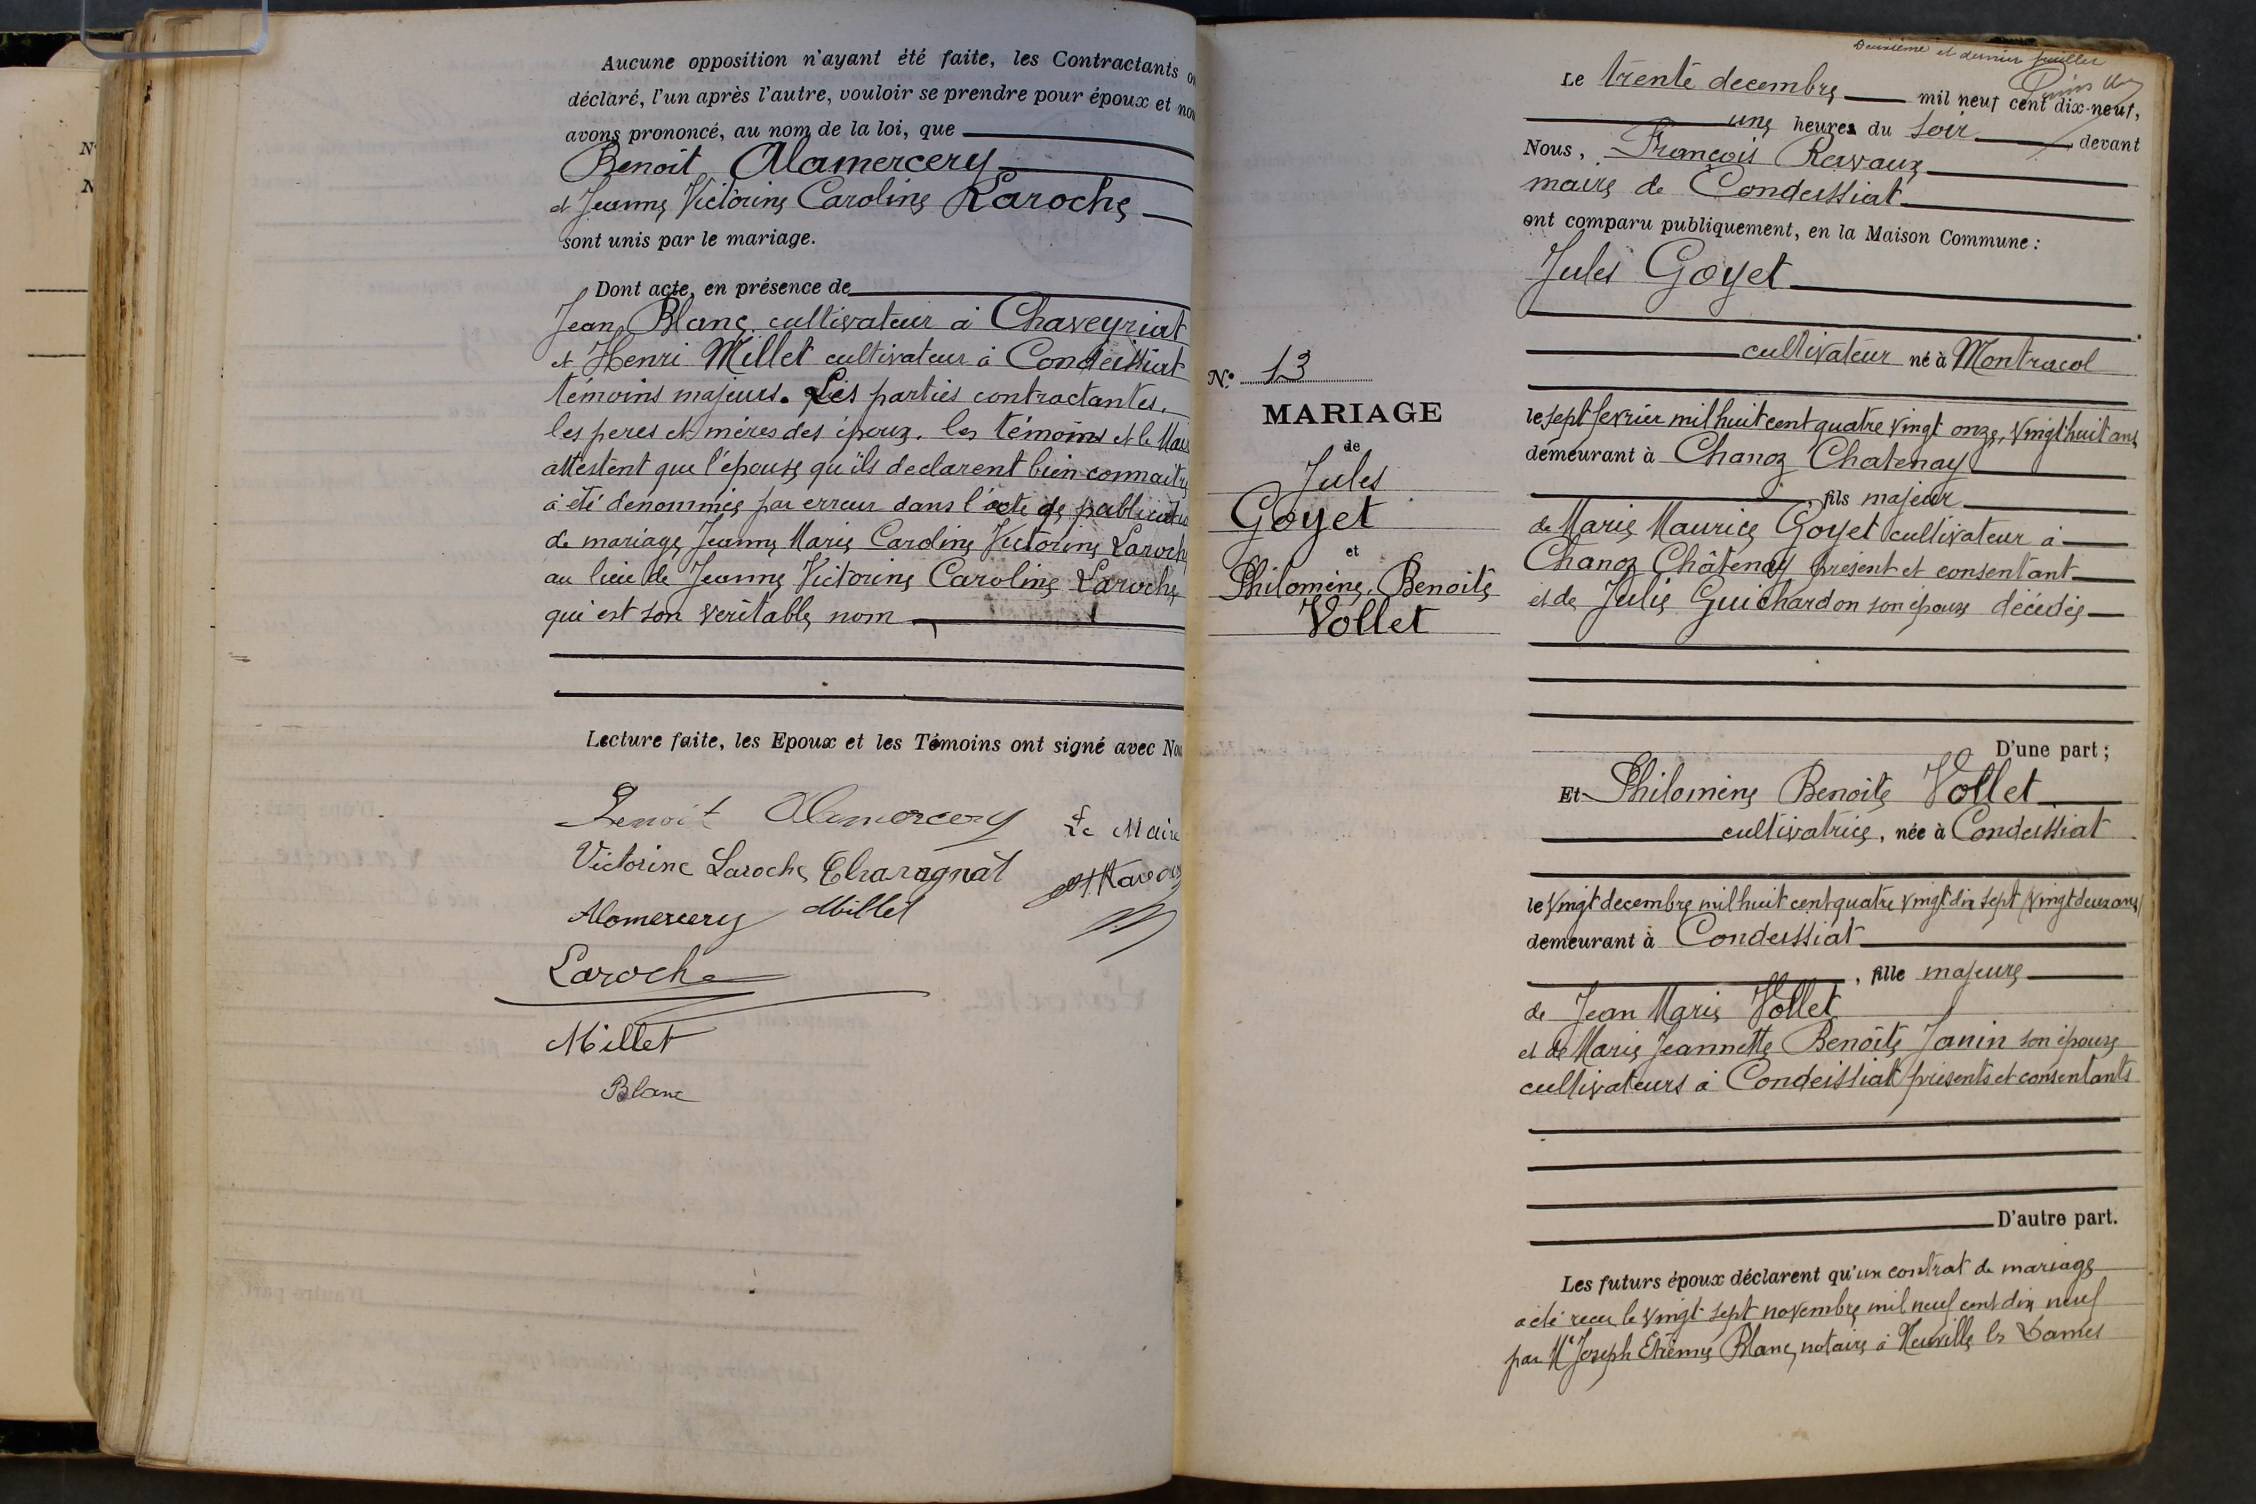 Aucune opposition n'ayant été faite, les Contractants
déclaré, l'un après l'autre, vouloir se prendre pour époux et
avons prononcé, au nom de la loi, que
Benoit Alamercery
et Jeanne Victorine Caroline Laroche
sont unis par le mariage.
Dont acte, en présence de
Jean Blanc cultivateur à Chaveyriat
et Henri Millet cultivateur à Condeissiat
témoins majeurs. Les parties contractantes,
les peres et méres des époux. les témoins et le
attestent que l'épouse qu'ils declarent bien connaitre
a été dénommée par erreur dans l'acte de
de mariage Jeanne Marie Caroline Victorine Laroche
au lieu de Jeanne Victorine Caroline Laroche
qui est son veritable nom
Lecture faite, les Epoux et les Témoins ont signé avec
Benoit Alamercery Le Maire
Victorine Laroche Charagnat
Alamercery Millet
Laroche
Millet
Blanc
Deuxième et dernier feuillet
Le trente decembre mil neuf cent dix-neuf,
une heures du soir, devant
Nous, François Ravaux
maire de Condeissiat
ont comparu publiquement, en la Maison Commune :
Jules Goyet
cultivateur né à Montracol
le sept fevrier mil huit cent quatre vingt onze, vingt huit ans
demeurant à Chanoz Chatenay
, fils majeur
de Marie Maurice Goyet cultivateur à
Chanoz Châtenay présent et consentant
et de Julie Guichardon son epouse décédée
D'une part ;
Nº 13
MARIAGE
de
Jules
Goyet
et
Philomène, Benoite
Vollet
Et Philomène Benoite Vollet
cultivatrice, née à Condeissiat
le vingt decembre mil huit cent quatre vingt dix sept (vingt deux ans)
demeurant à Condeissiat
, fille majeure
de Jean Marie Vollet
et de Marie Jeannette Benoite Janin son épouse
cultivateurs à Condeissiat présents et consentants
D'autre part.
Les futurs époux déclarent qu'un contrat de mariage
a été recu le vingt sept novembre mil neuf cent dix neuf
par Me Joseph Etienne Blanc, notaire à Neuville les Dames